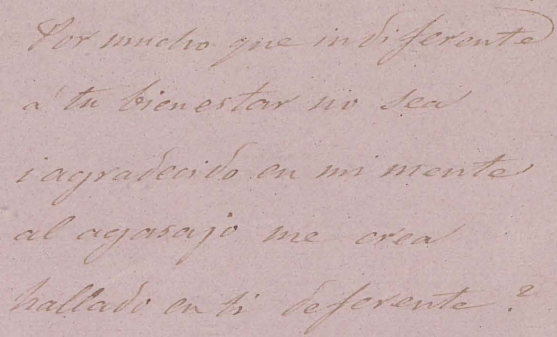 Por mucho que indiferente
á tu bienestar no sea
i agradecido en mi mente
al agasajo me crea
hallado en ti deferente?